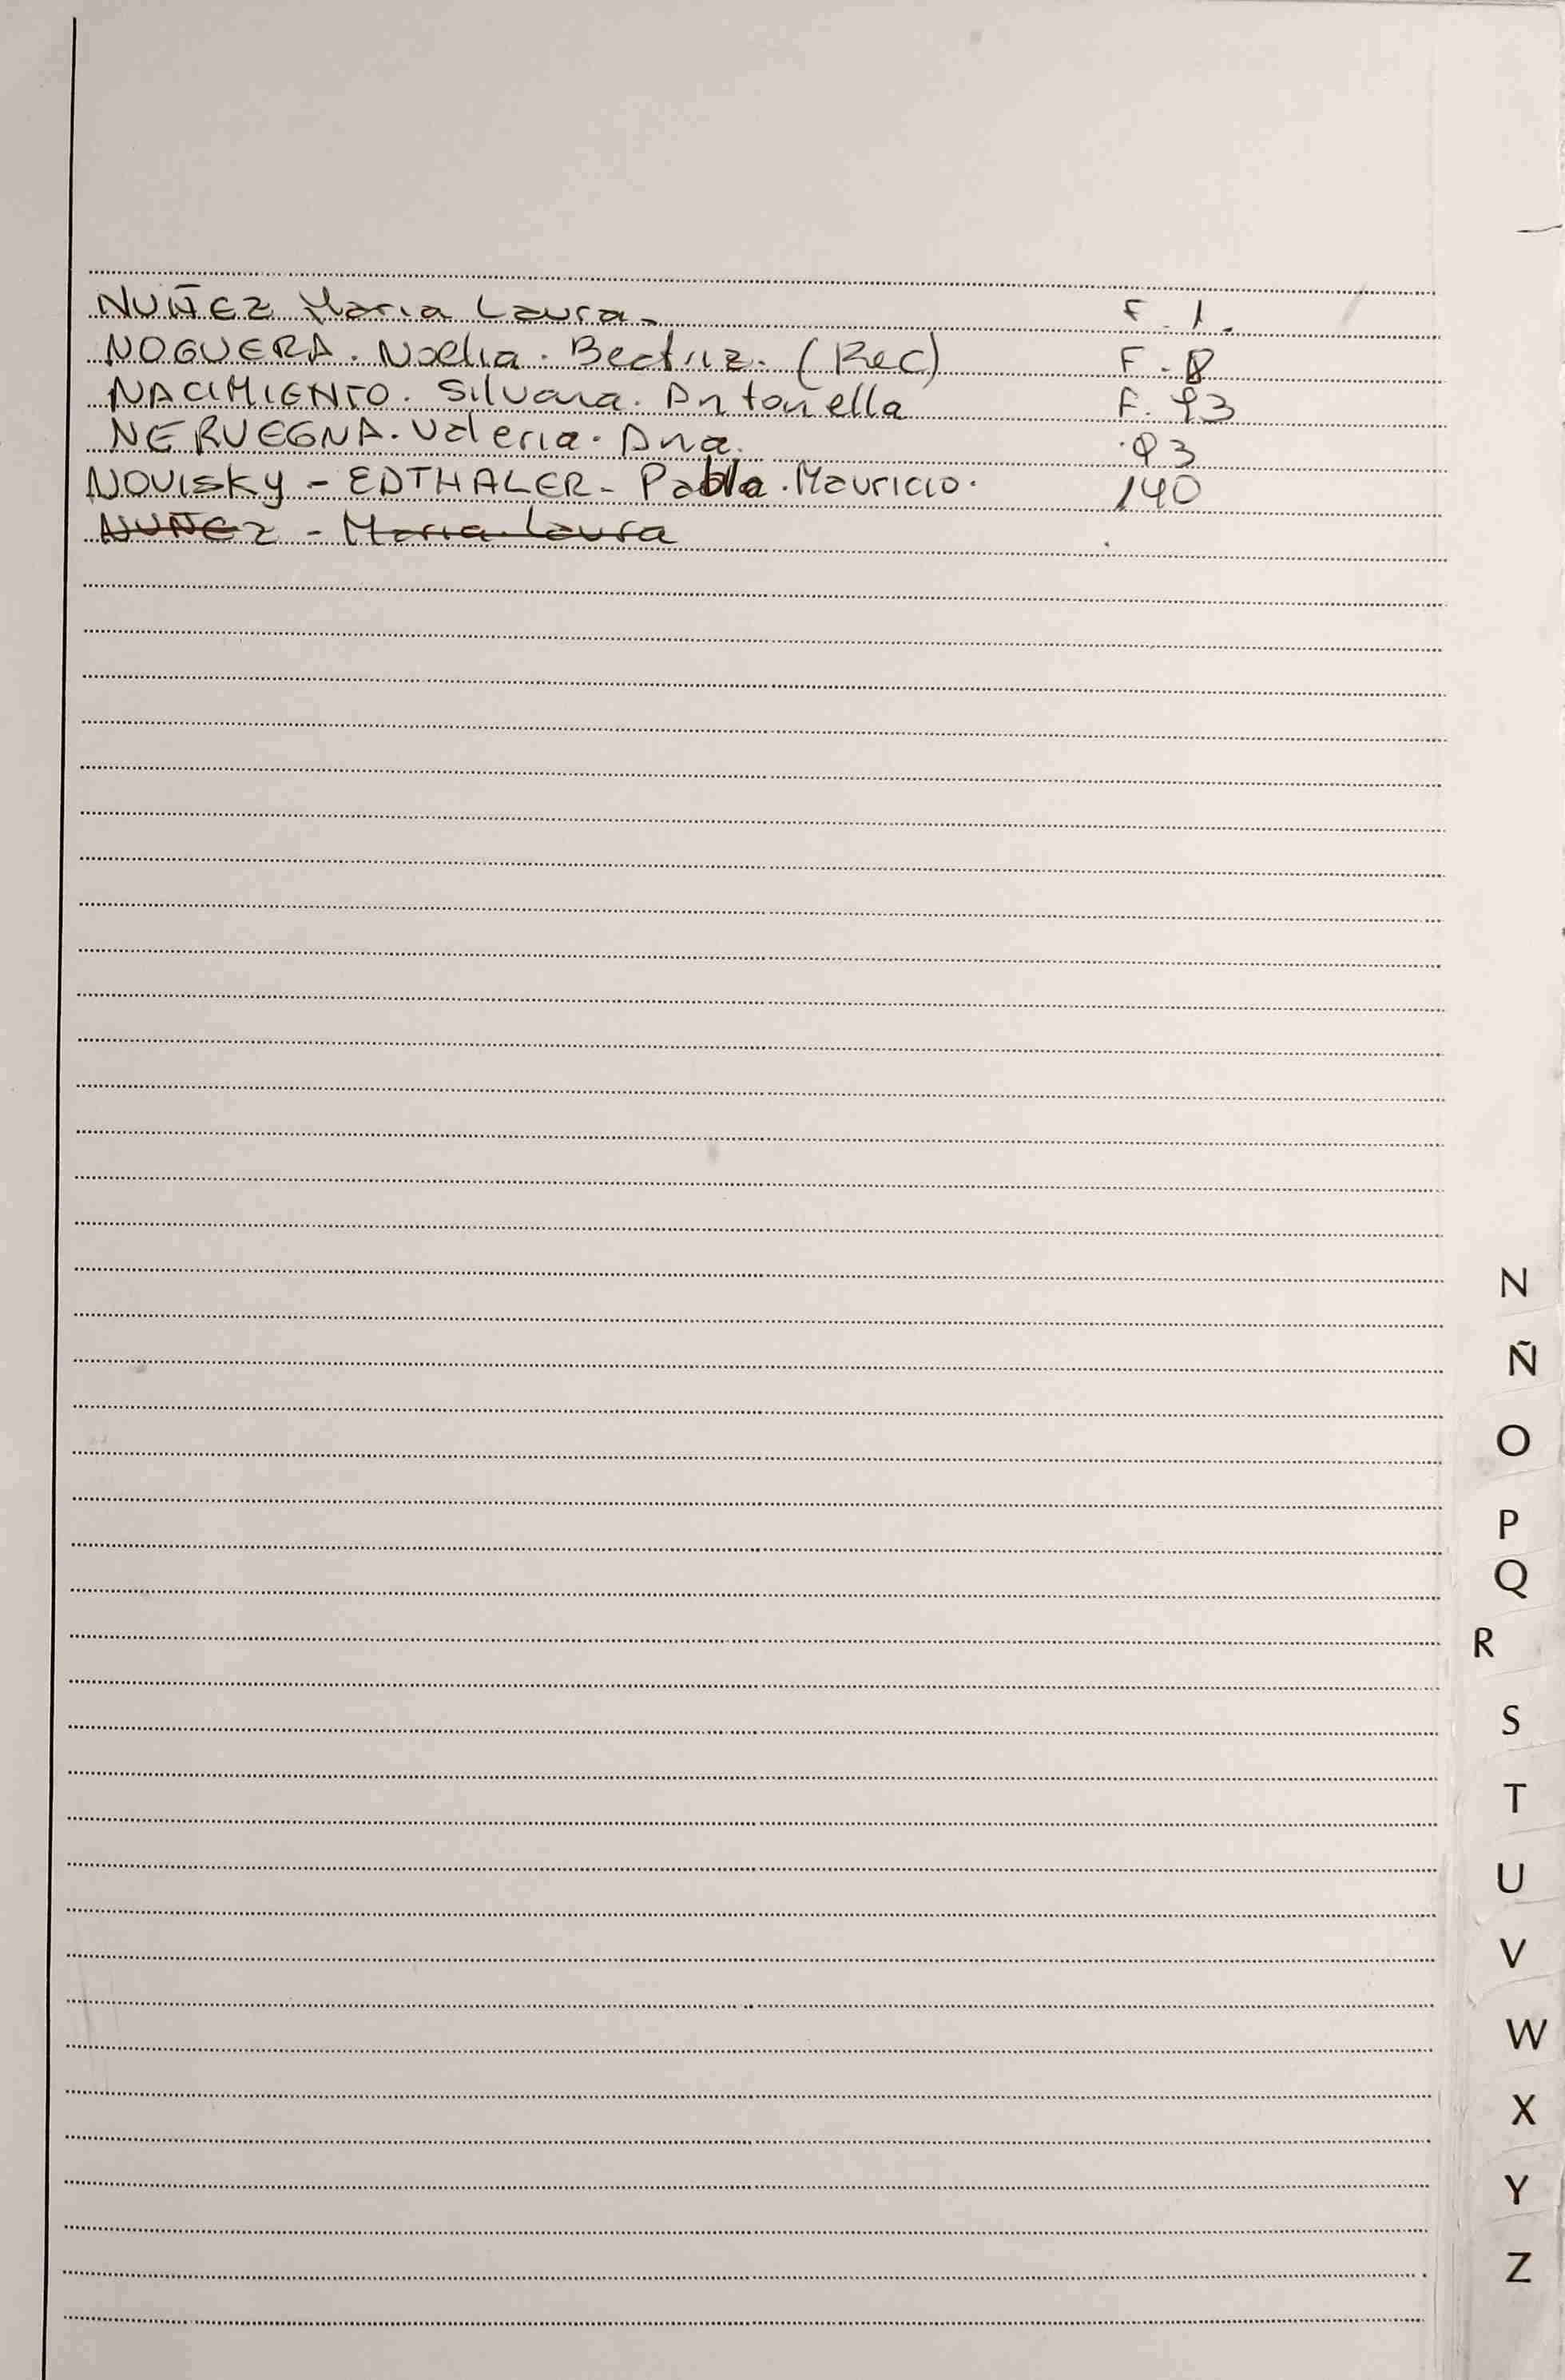 NUÑEZ Maria Laura- F. 1.
NOGUERA. Noelia. Beatriz. (Rec) F. 8
NACIMIENTO. Silvana. Antonella F. 93
NERVEGNA. Valeria. Ana. 93
NOVISKY - EDTHALER - Pablo. Mauricio. 140
NUÑEZ - Maria Laura
N
Ñ
O
P
Q
R
S
T
U
V
W
X
Y
Z